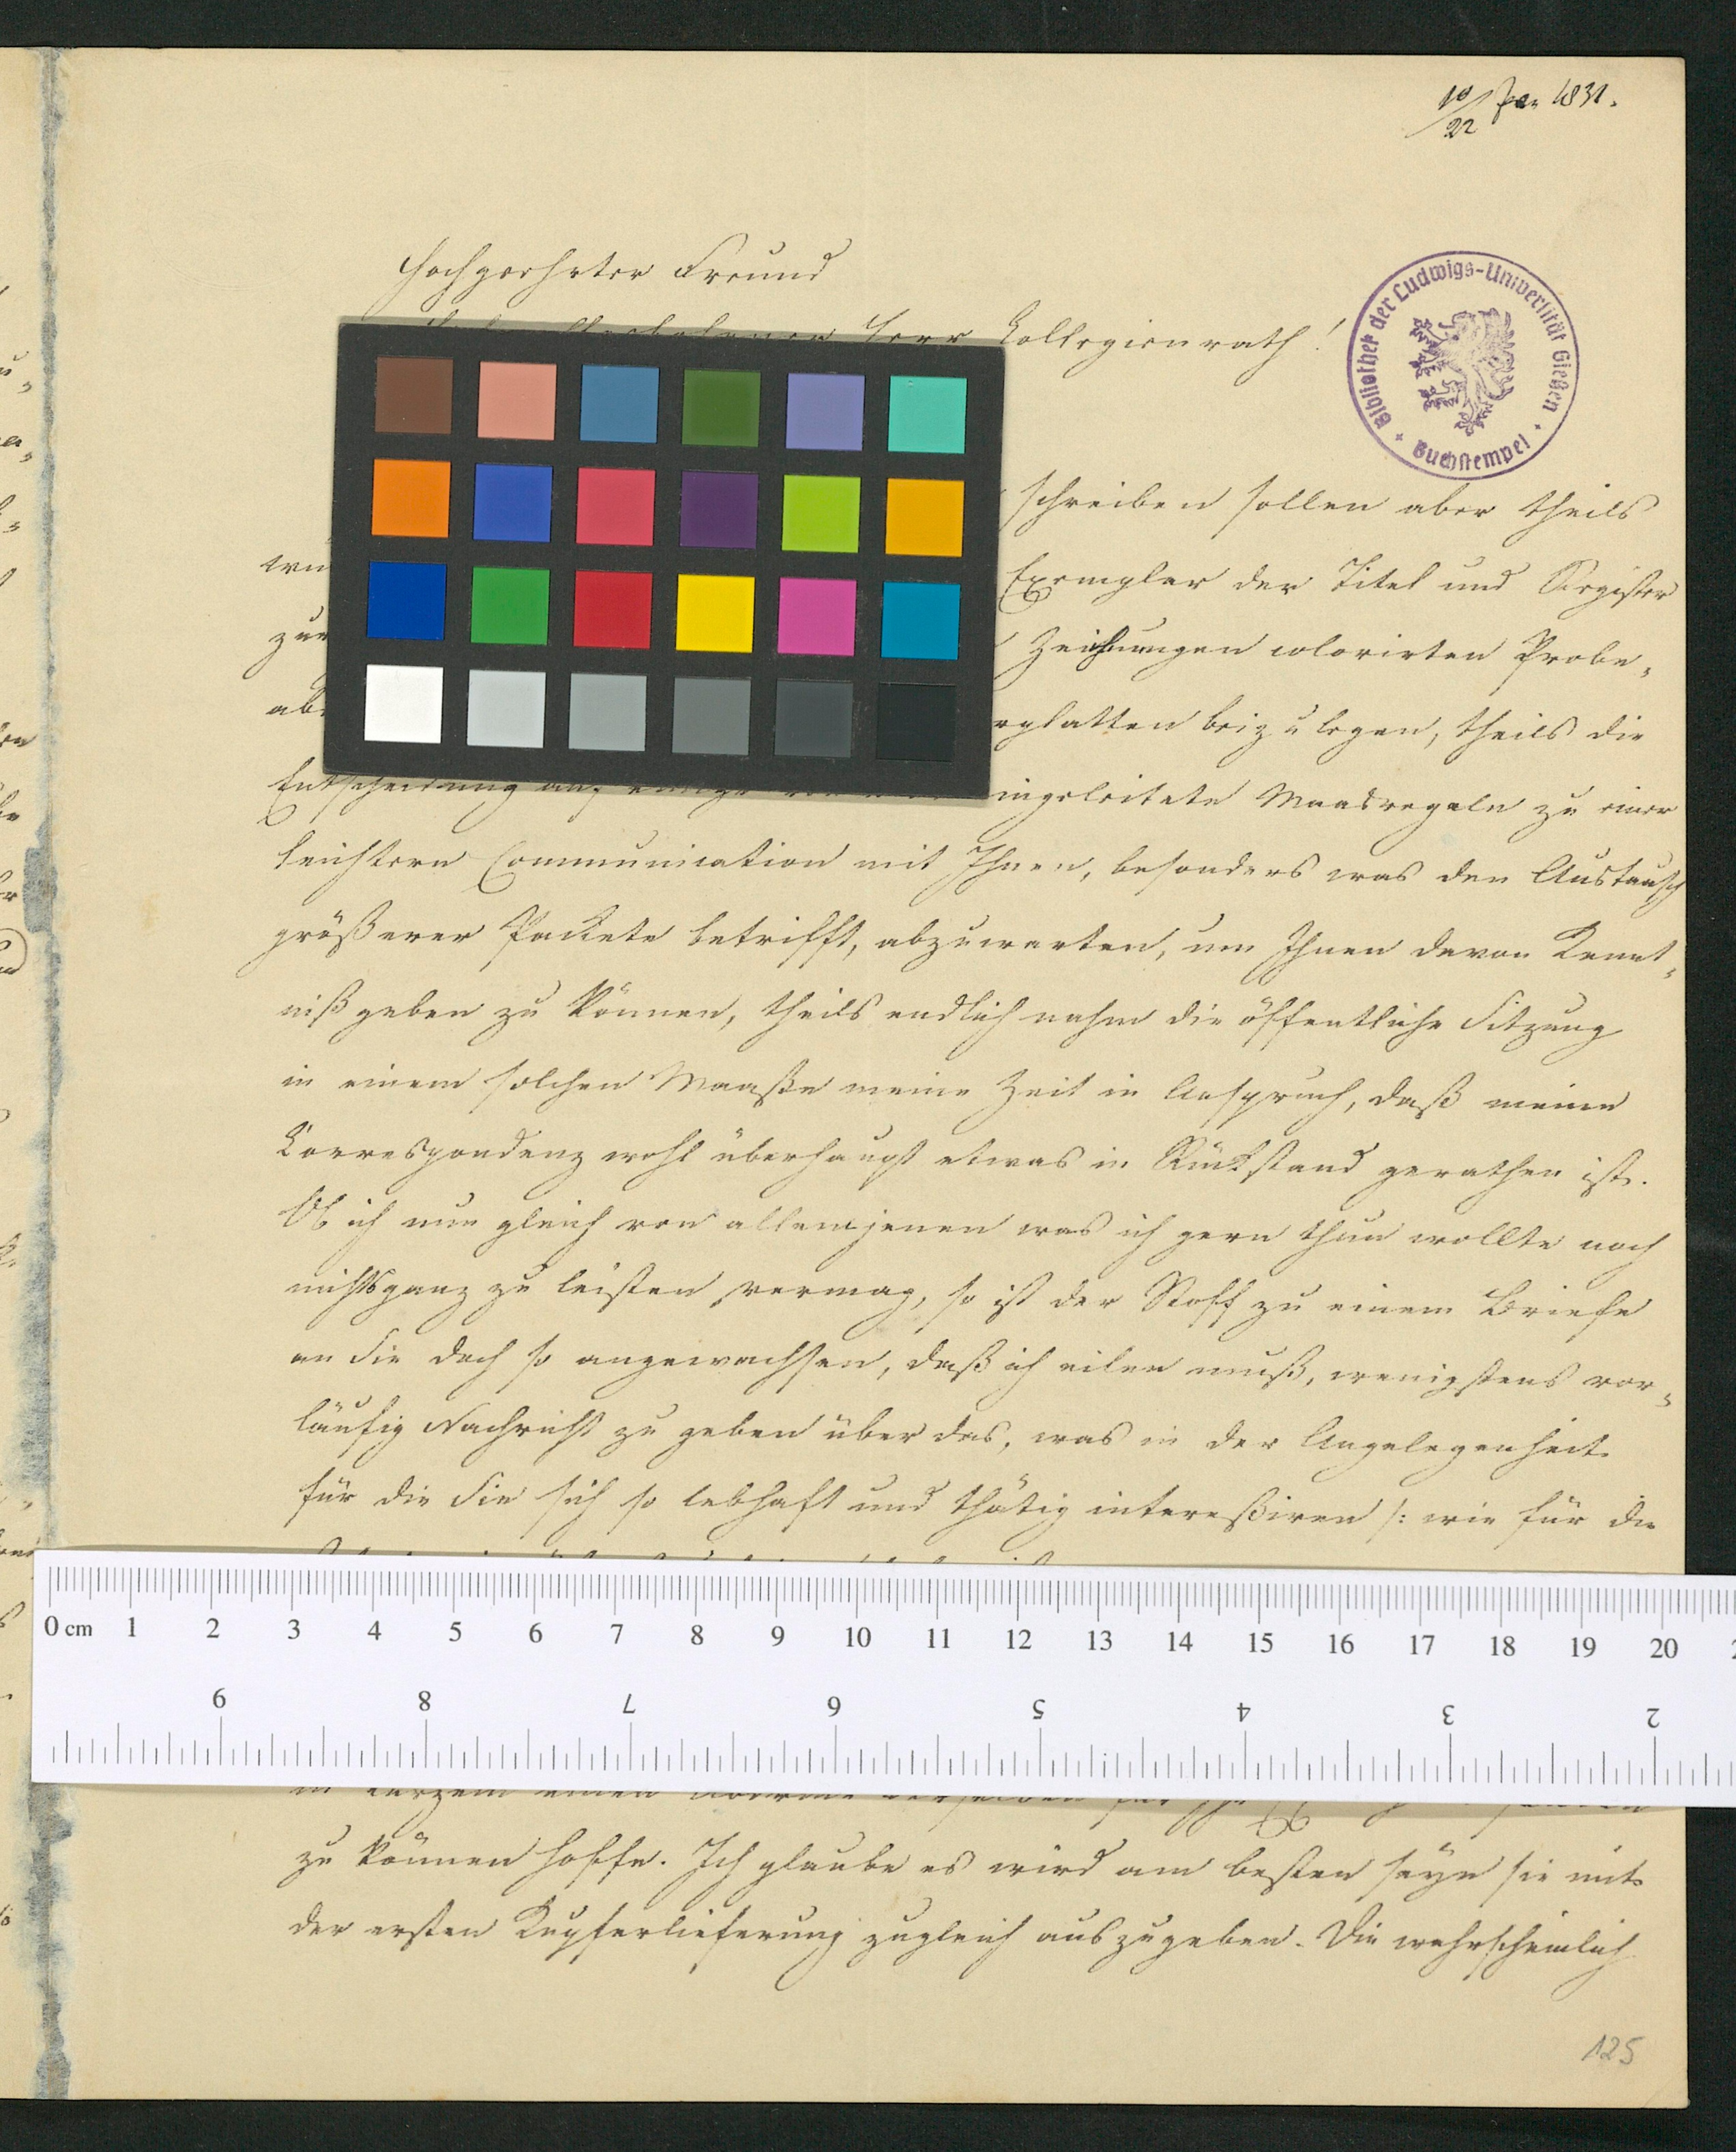 10/22 Jan 1831.
Hochgeehrter Freund
Herr Collegienrath!
Bibliothek der Ludwigs-Universität Gießen
Buchstempel
schreiben sollen aber theils
Exemplar der Titel und Register
zur Zeichnungen colorirten Probe-
ab rplatten beizulegen, theils die
Entscheidung auf einige eingeleitete Maasregeln zu einer
leichtern Communication mit Ihnen, besonders was den Austausch
größerer Packete betrifft, abzuwarten, um Ihnen davon Kennt-
niß geben zu können, theils endlich nahm die öffentliche Sitzung
in einem solchen Maaße meine Zeit in Anspruch, daß meine
Correspondenz wohl überhaupt etwas in Rückstand gerathen ist.
Ob ich nun gleich von allem jenen was ich gern thun wollte noch
nichts ganz zu leisten vermag, so ist der Stoff zu einem Briefe
an Sie doch so angewachsen, daß ich eilen muß, wenigstens vor-
läufig Nachricht zu geben über das, was in der Angelegenheit
für die Sie sich so lebhaft und thätig intereßiren /: wie für die
0 cm 1 2 3 4 5 6 7 8 9 10 11 12 13 14 15 16 17 18 19 20
9 8 7 6 5 4 3 2
in kurzem einen derselben für
zu können hoffe. Ich glaube es wird am besten seyn sie mit
der ersten Kupferlieferung zugleich auszugeben. Die wahrscheinlich
125